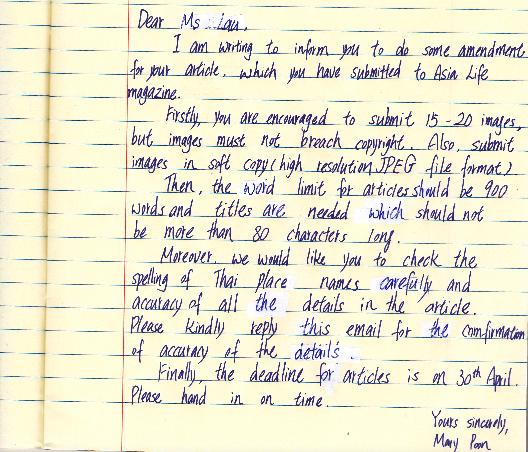 Dear Ms Lau,
I am writing to inform you to do some amendment
for your article, which you have submitted to Asia Life
magazine.
Firstly, you are encouraged to submit 15-20 images,
but images must not breach copyright. Also, submit
images in soft copy (high resolution JPEG file format)
Then, the word limit for articles should be 900
words and titles are needed which should not
be more than 80 characters long.
Moreover, we would like you to check the
spelling of Thai place names carefully and
accuracy of all the details in the article.
Please kindly reply this email for the comfirmation
of accuracy of the details.
Finally, the deadline for articles is on 30th April.
Please hand in on time.
Yours sincerely,
Mary Poon